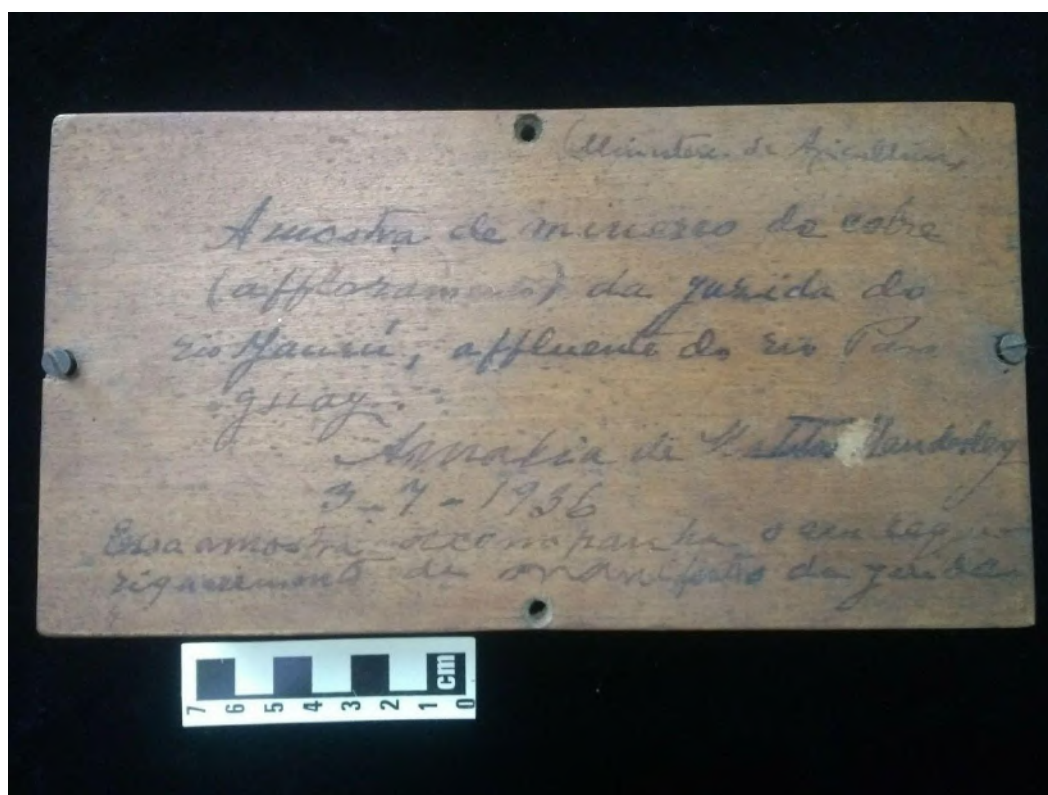 (Ministerio da Agricultura)
Amostra de minereo de cobre
(affloramento) da jazida do
rio, affluente do rio Para
guay.
de Wanderley
3-7-1936
Essa amostra acompanha o seu
de manifesto da jazida
7 6 5 4 3 2 1 0 cm